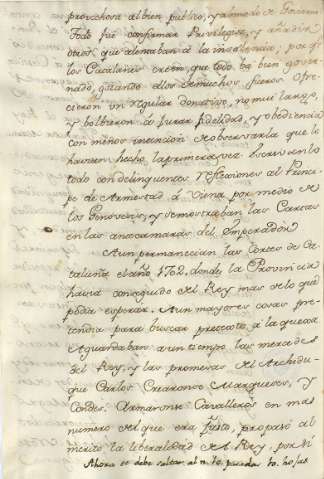 provechosa al bien publico, y ahun de el Govierno
Todo fué confirmar Privilegios, y añadir
otros que alentaban á la insolencia, porq.e
los Catalanes creen, que todo vá bien gover
nado, gozando ellos de muchos fueros. Ofre
cieron un regular donativo, no mui largo,
y bolbieron á jurar fidelidad, y obediencia
con menos intencion de observarla que lo
havian hecho la primera vez. Escrivieron lo
todo con delinquentes reflexiones al Princi
pe de Armestad á Viena por medio de
los Genoveses, y se mostraban las Cartas
en las anocamaras del Emperador
Aun permanecian las Cortes de Ca
taluña el año 1702, donde la Provincia
havia conseguido del Rey mas de lo que
podia esperar. Aun mayores cosas pre
tendia para buscar pretexto á la quexa
Aguardaban a un tiempo las mercedes
del Rey, y las promesas del Archidu
que Carlos. Crearonse Marqueses, y
Condes. Armaronse Cavalleros en mas
numero del que era justo, propasó al
merito la liberalidad del Rey, por Ni
Ahora se debe saltar al n.